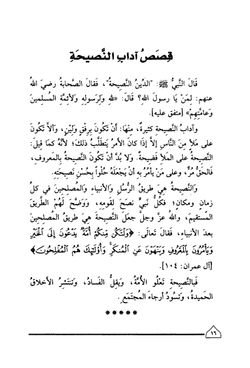 قِصَصُ آدَابِ النَّصِيحَةِ
قَالَ النَّبِيُّ ﷺ: "الدِّينُ النَّصِيحَةُ"، فَقَالَ الصَّحَابَةُ رَضِيَ اللهُ
عنهم: لِمَنْ يَا رسولَ اللهِ؟ قَالَ: «للهِ وَلِرَسُولِهِ وَلأئِمَّةِ المُسْلِمِينَ
وَعَامَّتِهِمْ» [متفق عليه].
وآدابُ النَّصِيحَةِ كثيرةٌ، مِنْهَا: أنْ تَكُونَ بِرِفْقٍ وَلِينٍ، وَألَّا تَكُونَ
عَلَى مَلَأٍ مِنَ النَّاسِ إلَّا إذَا كَانَ الأمْرُ يَتَطَلَّبُ ذَلِكَ؛ لأنَّهُ كمَا قِيلَ:
النَّصِيحَةُ عَلَى المَلَأِ فَضِيحَةٌ. وَلَا بُدَّ أنْ تَكُونَ النَّصِيحَةُ بِالمَعروفِ،
فَالحَقُّ مُرٌّ، وعلى مَنْ يَأمُرُ بِهِ أنْ يَجعَلَهُ حُلْوًا بحُسْنِ نَصِيحَتِهِ.
وَالنَّصِيحَةُ هِيَ طَرِيقُ الرُّسُلِ وَالأنبِيَاءِ وَالمُصلِحِينَ فِي كلِّ
زمَانٍ ومكَانٍ؛ فَكُلُّ نَبيٍّ نصَحَ لِقَومِهِ، ووَضَّحَ لَهُمُ الطَّرِيقَ
المُستَقِيمَ، واللهُ عزَّ وجلَّ جعَلَ النَّصِيحَةَ هِيَ طريقُ المُصلِحِينَ
بعدَ الأنبِيَاءِ، فقَالَ تَعَالَى: ﴿وَلْتَكُن مِّنكُمْ أُمَّةٌ يَدْعُونَ إِلَى الْخَيْرِ
وَيَأْمُرُونَ بِالْمَعْرُوفِ وَيَنْهَوْنَ عَنِ الْمُنكَرِ وَأُولَٰئِكَ هُمُ الْمُفْلِحُونَ﴾
[آل عمران: ١٠٤].
فَبِالنَّصِيحَةِ تَعْلُو الأُمَّةُ، وَيَقِلُّ الفَسَادُ، وَيَنتَشِرُ الأخلَاقُ
الحَمِيدةُ، وتَسُودُ أرجاءَ المُجتَمَعِ.
*****
١٦